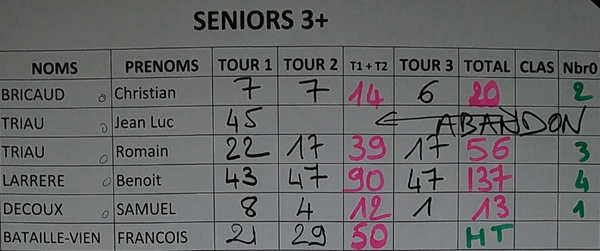 SENIORS 3+
NOMS PRENOMS TOUR 1 TOUR 2 T1 + T2 TOUR 3 TOTAL CLAS Nbr0
BRICAUD 0 Christian 7 7 14 6 20 2
TRIAU 0 Jean Luc 45 ← ABANDON
TRIAU 0 Romain 22 17 39 17 56 3
LARRERE 0 Benoit 43 47 90 47 137 4
DECOUX 0 SAMUEL 8 4 12 1 13 1
BATAILLE-VIEN FRANCOIS 21 29 50 HT